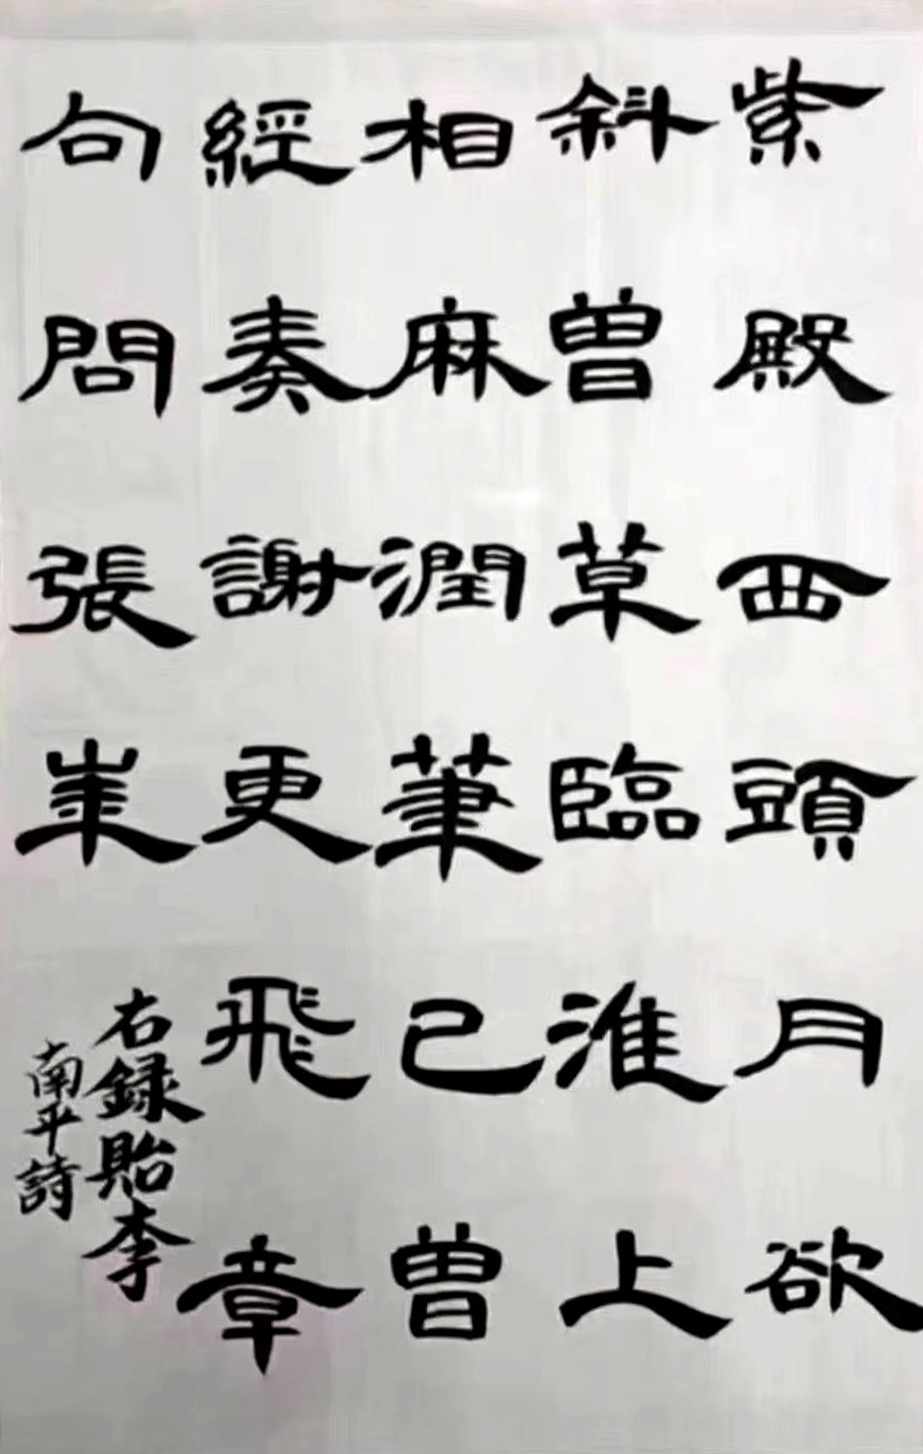 紫殿西頭月欲
斜曾草臨淮上
相麻潤筆已曾
經奏謝更飛章
句問張崋
右録貽李
南平詩